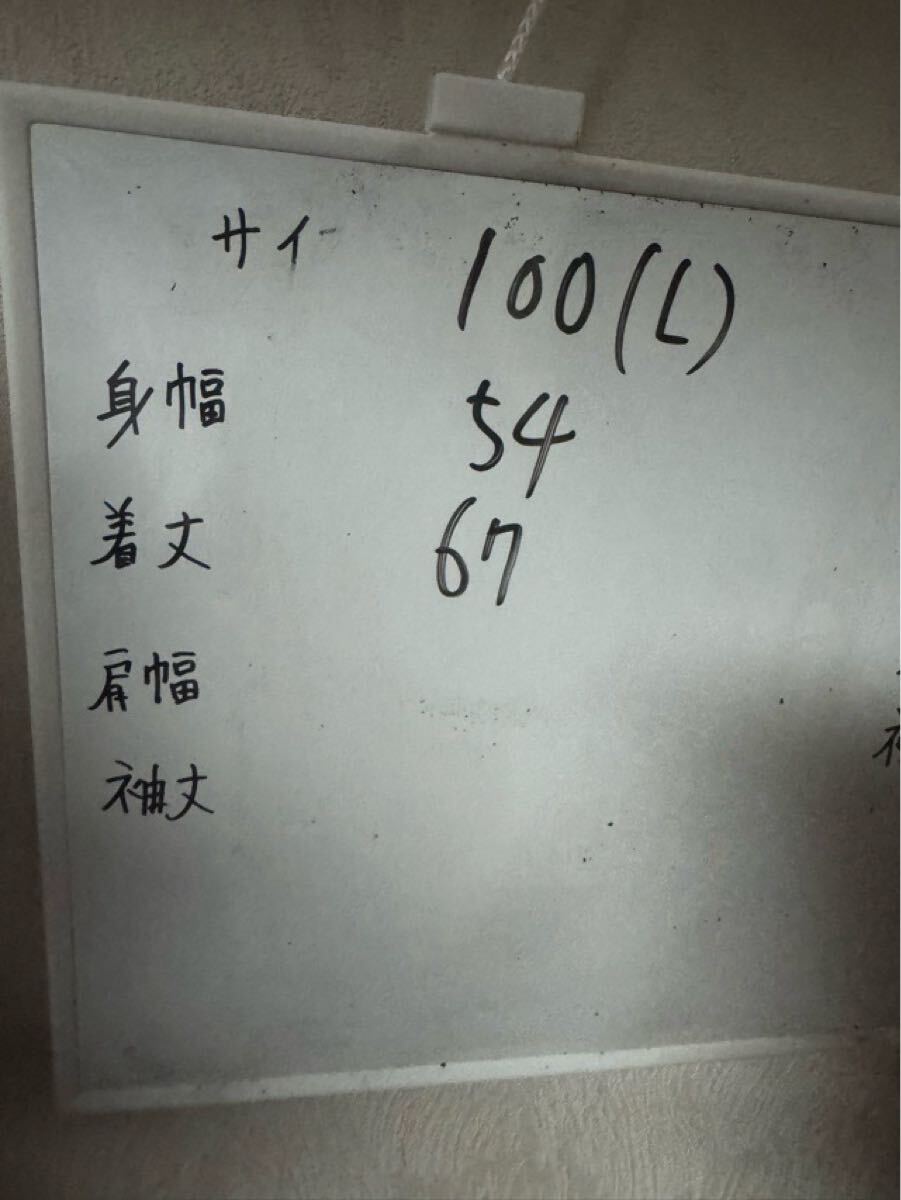 サイ 100(L)
身幅 54
着丈 67
肩幅
袖丈